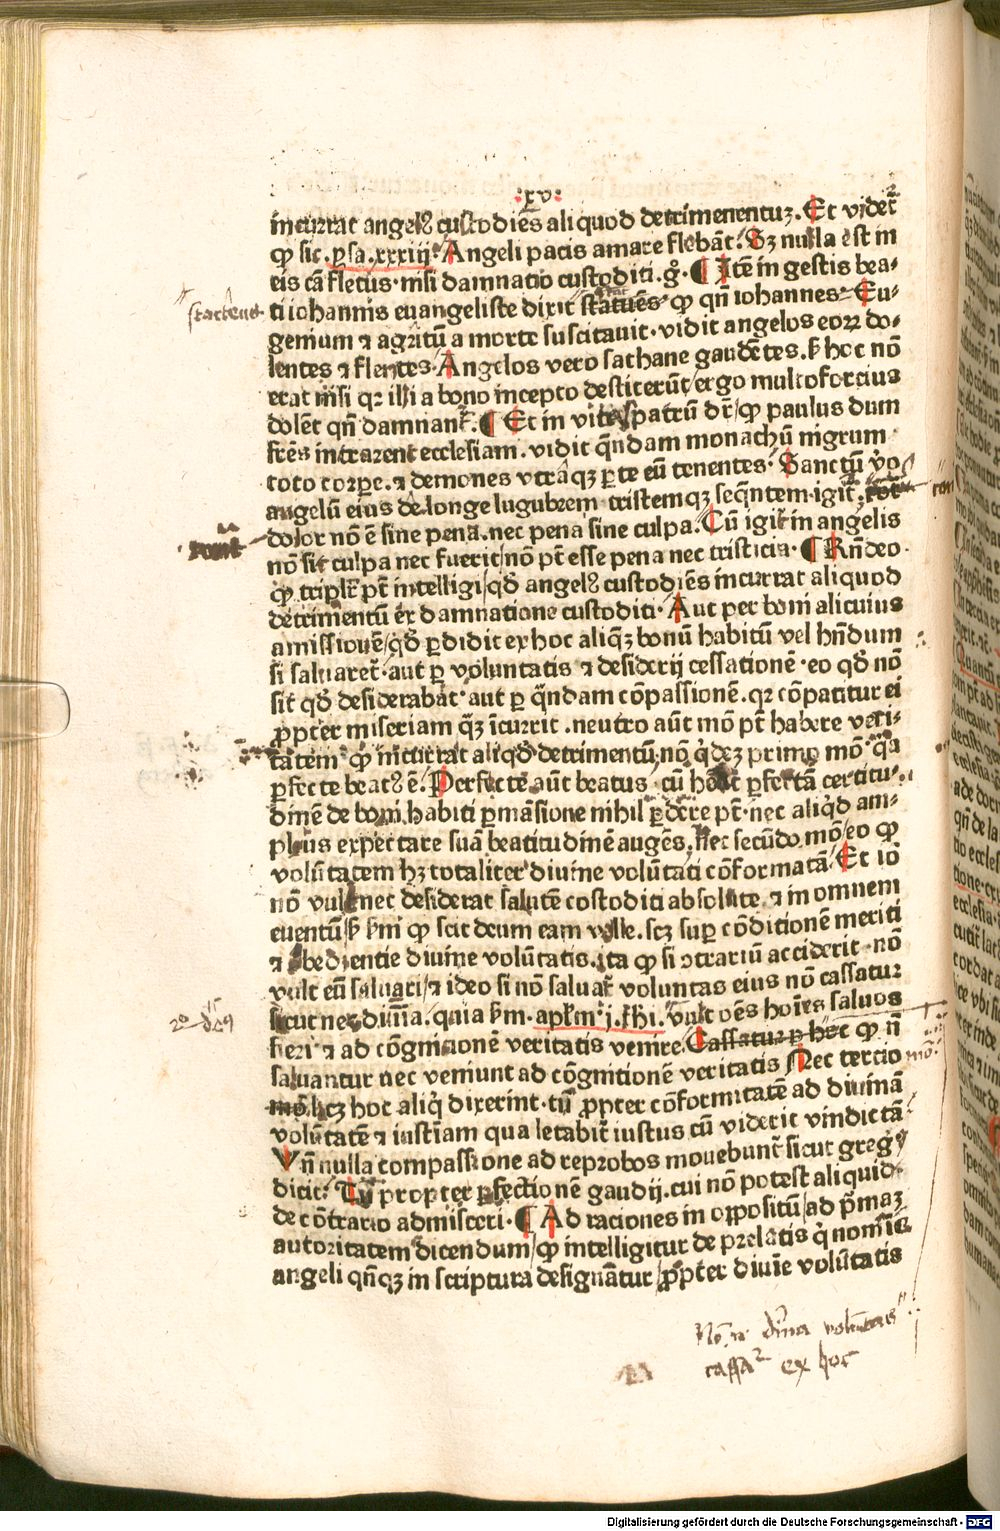 :xv:
incurrat angelꝰ custodiēs aliquod detrimenentuꝫ. Et videt̄
ꝙ sic. p̄sa .xxxiij. Angeli pacis amare flebāt. Sꝫ nulla est in
eis cā fletus. nisi damnatio custoditi. gͦ. ¶ Itē in gestis bea⸗
ti iohannis euangeliste dixit statuēs ꝙ qn̄ iohannes Eu⸗
genium ⁊ agritū a morte suscitauit. vidit angelos eoꝝ do⸗
lentes ⁊ flentes. Angelos vero sathane gaudētes. s̄ hoc nō
erat nisi qꝛ illi a bono incepto destiterūt / ergo multoforcius
dolēt qn̄ damnant̄. ¶ Et in vitaspatrū dr̄ / ꝙ paulus dum
fr̄es intrarent ecclesiam. vidit q̄ndam monachū nigrum
toto corꝑe. ⁊ demones vtrāqꝫ ꝑte eū tenentes. Sanctū v̄o
angelū eius de longe lugubrem tristemqꝫ seq̄ntem. igit̄.
dolor nō ē sine pena. nec pena sine culpa. Cū igit̄ in angelis
nō sit culpa nec fuerit / nō pt̄ esse pena nec tristicia. ¶ Rn̄deo
ꝙ triplr̄ pt̄ intelligi / qd̄ angelꝰ custodiēs incurrat aliquod
detrimentū ex damnatione custoditi. Aut per boni alicuius
amissionē / qd̄ ꝑdidit ex hoc aliqꝫ bonū habitū vel hn̄dum
si saluaret̄. aut ꝑ voluntatis ⁊ desiderij cessationē. eo qd̄ nō
sit qd̄ desiderabat. aut ꝑ q̄ndam cōpassionē. qꝛ cōpatitur ei
ꝓpter miseriam quā incurrit. neutro aūt mō pt̄ habere veri⸗
tatem ꝙ incurrat aliqd̄ detrimentū. nō qͥdeꝫ primo mō qꝛa
ꝑfecte beatꝰ ē. Perfecte aūt beatus cū habeat ꝑfectā certitu⸗
dinē de boni habiti ꝑmāsione nihil ꝑdere pt̄. nec aliqͥd am⸗
plius expectare suā beatitudinē augēs. nec secūdo mō / eo ꝙ
volūtatem hꝫ totaliter diuine volūtati cōformatā. Et iō
nō vult nec desiderat salutē costoditi absolute. ⁊ in omnem
euentū / s̄ s̄m ꝙ scit deum eam velle. scꝫ suꝑ cōditionē meriti
⁊ obedientie diuine volūtatis. ita ꝙ si ↄtrariū acciderit. nō
vult eū saluari / ⁊ ideo si nō saluat̄ voluntas eius nō cassatur
sicut nec diuīa. quia s̄m. apl̄m .j. thi. vult oēs hoīes saluos
fieri ⁊ ad cōgnicionē veritatis venire. Cassatur ꝑ hec ꝙ n̄
saluantur nec veniunt ad cōgnitionē veritatis Nec tercio
mō. licꝫ hoc aliqͥ dixerint. tn̄ ꝓpter cōformitatē ad diuinā
volūtatē ⁊ iustīam qua letabit̄ iustus cū viderit vindictā
Vn̄ nulla compassione ad reprobos mouebunt̄ sicut greg̾
dicit. Tū propter ꝑfectionē gaudij. cui nō potest aliquid
de cōtrario admisceri. ¶ Ad raciones in oppositū / ad p̄maꝫ
autoritatem dicendum / ꝙ intelligitur de prelatis qͥ nomīe
angeli qn̄qꝫ in scriptura designātur / ꝓpter diuīe volūtatis
mō.
voluntas
ex hoc
Digitalisierung gefördert durch die Deutsche Forschungsgemeinschaft - DFG